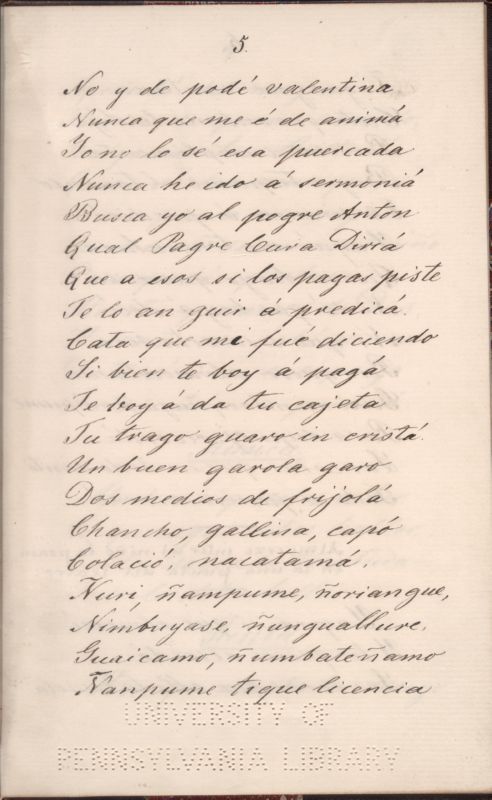 5.
No y de podé valentina
Nunca que me é de animá
Yo no lo sé esa puercada
Nunca he ido á sermoniá
Busca yo al pogre Anton
Qual Pagre Cura Diriá
Que a esos si los pagas piste
Te lo an guir á predicá.
Cata que mi fué diciendo
Si bien te boy á pagá
Te boy á da tu cajeta
Tu trago guaro in cristá.
Un buen garola garo
Dos medios de frijolá
Chancho, gallina, capó
Colacio, nacatamá,
Nuri, ñampume, ñoriangue,
Nimbuyase, ñunguallure.
Guaicamo, ñumbateñamo
Ñanpume tique licencia
UNIVERSITY OF
PENNSYLVANIA LIBRARY